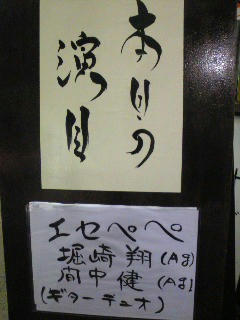 本日の
演目
エセペペ
堀崎 翔 (Ag)
向中 健 (Ag)
(ギターデュオ)